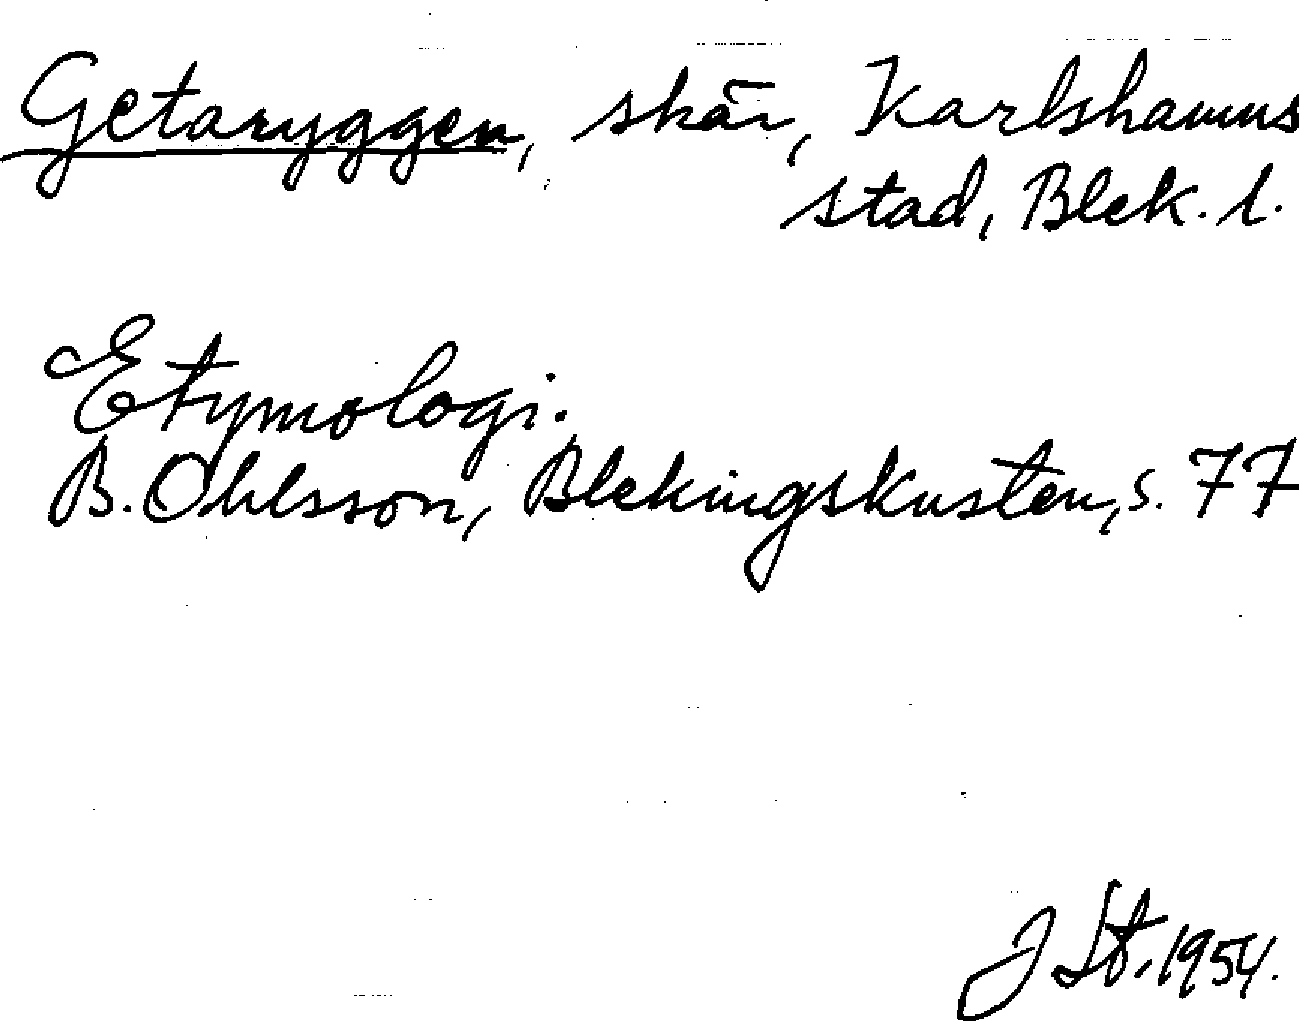 Getaryggen, skär, Karlshamns
stad, Blek. l.
Etymologi.
B. Ohlsson, Blekingskusten, s. 77
J St. 1954.